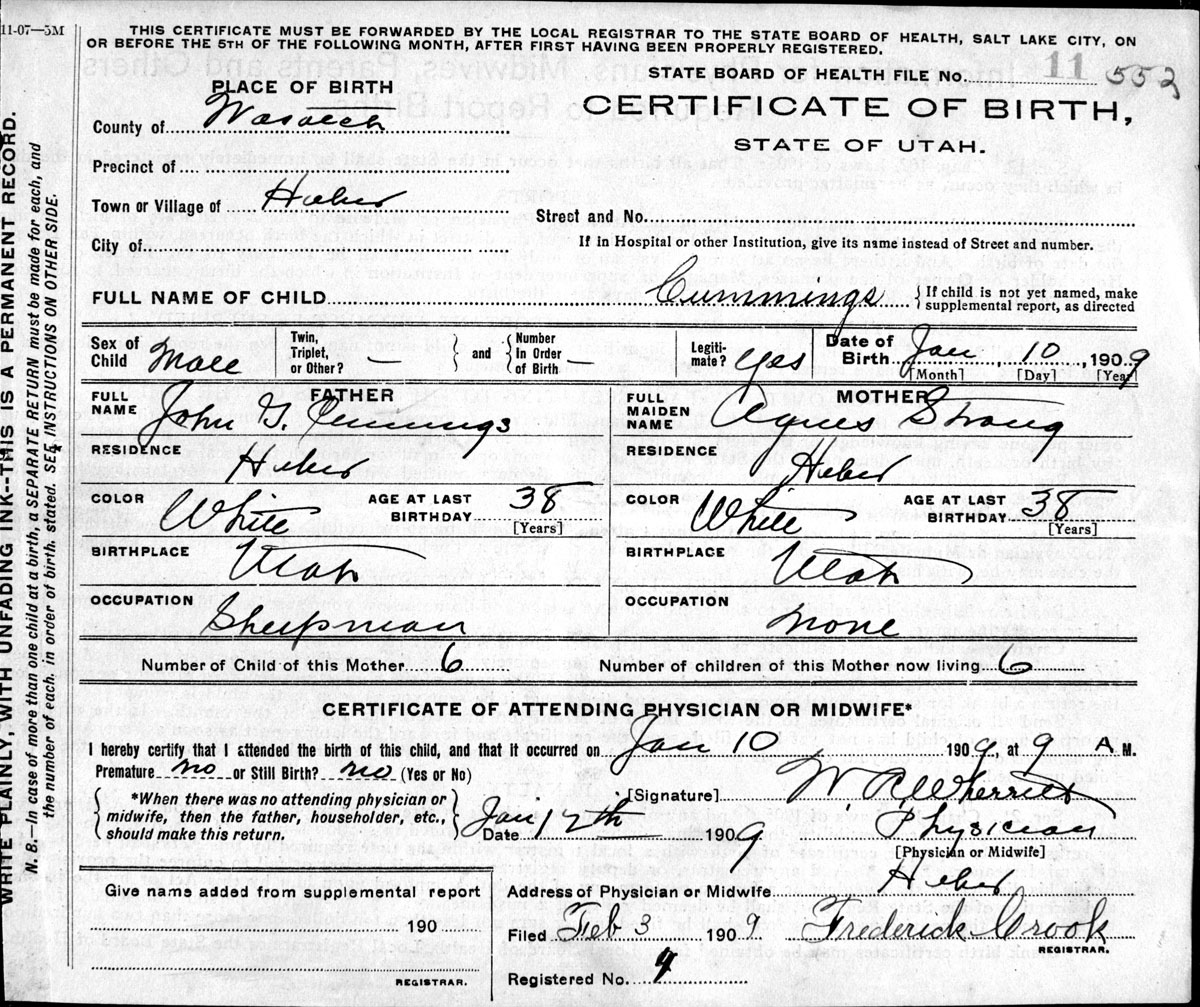 11-07—5M
THIS CERTIFICATE MUST BE FORWARDED BY THE LOCAL REGISTRAR TO THE STATE BOARD OF HEALTH, SALT LAKE CITY, ON
OR BEFORE THE 5TH OF THE FOLLOWING MONTH, AFTER FIRST HAVING BEEN PROPERLY REGISTERED.
STATE BOARD OF HEALTH FILE No. 11 552
PLACE OF BIRTH
CERTIFICATE OF BIRTH,
STATE OF UTAH.
County of Wasatch
Precinct of
Town or Village of Heber
Street and No.
City of
If in Hospital or other Institution, give its name instead of Street and number.
FULL NAME OF CHILD Cummings { If child is not yet named, make
supplemental report, as directed
Sex of Child Male
Twin, Triplet, or Other? —
} and {
Number In Order of Birth —
Legiti-mate? Yes
Date of Birth Jan 10, 1909
[Month] [Day] [Year]
FATHER
FULL NAME John G. Cummings
RESIDENCE Heber
COLOR White
AGE AT LAST BIRTHDAY 38
[Years]
BIRTHPLACE Utah
OCCUPATION Sheepman
MOTHER
FULL MAIDEN NAME Agnes Strong
RESIDENCE Heber
COLOR White
AGE AT LAST BIRTHDAY 38
[Years]
BIRTHPLACE Utah
OCCUPATION None
Number of Child of this Mother 6
Number of children of this Mother now living 6
CERTIFICATE OF ATTENDING PHYSICIAN OR MIDWIFE*
I hereby certify that I attended the birth of this child, and that it occurred on Jan 10 1909, at 9 A M.
Premature no or Still Birth? no (Yes or No)
{ *When there was no attending physician or
midwife, then the father, householder, etc.,
should make this return. }
[Signature] W R Wherritt
Date Jan 12th 1909
Physician
[Physician or Midwife]
Give name added from supplemental report
190
REGISTRAR.
Address of Physician or Midwife Heber
Filed Feb 3 1909 Frederick Crook
REGISTRAR.
Registered No. 9
WRITE PLAINLY, WITH UNFADING INK--THIS IS A PERMANENT RECORD.
N. B.—In case of more than one child at a birth, a SEPARATE RETURN must be made for each, and
the number of each, in order of birth, stated. SEE INSTRUCTIONS ON OTHER SIDE.